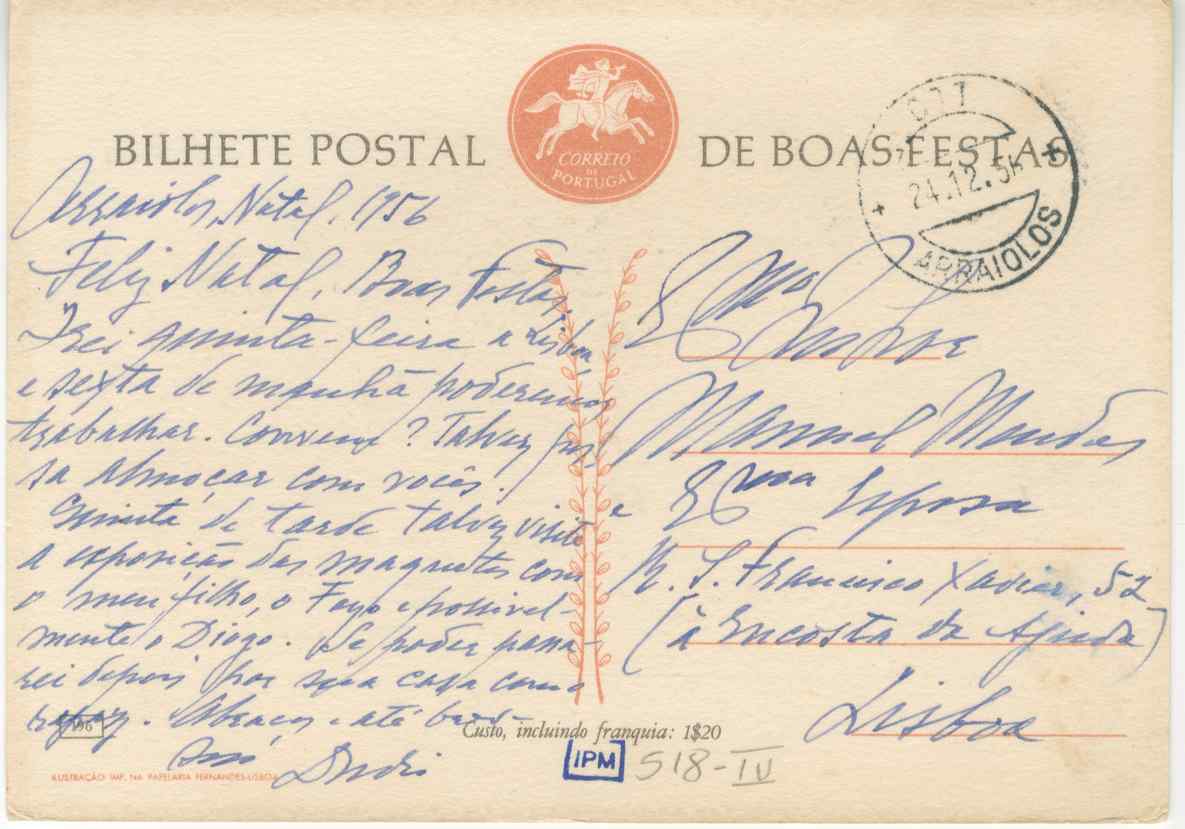 BILHETE POSTAL
CORREIO
DE
PORTUGAL
DE BOAS FESTAS
CTT
24.12.56
ARRAIOLOS
Arraiolos, Natal, 1956
Feliz Natal, Boas Festas,
Irei quinta-feira a Lisboa
e sexta de manhã poderemos
trabalhar. Convem? Talvez pos-
sa almoçar com vocês.
Quinta de tarde talvez visite
a exposição das maquetes com
o meu filho, o e possivel-
mente o Diogo. Se poder passa-
rei depois por sua casa com o
rapaz. Abraços e até
Exmo
Manuel Mendes
e Exma Esposa
R. S. Francisco Xavier, 52
(à Encosta da Ajuda)
Lisboa
196
Custo, incluindo franquia: 1$20
ILUSTRAÇÃO IMP. NA PAPELARIA FERNANDES-LISBOA
IPM
S18-IV